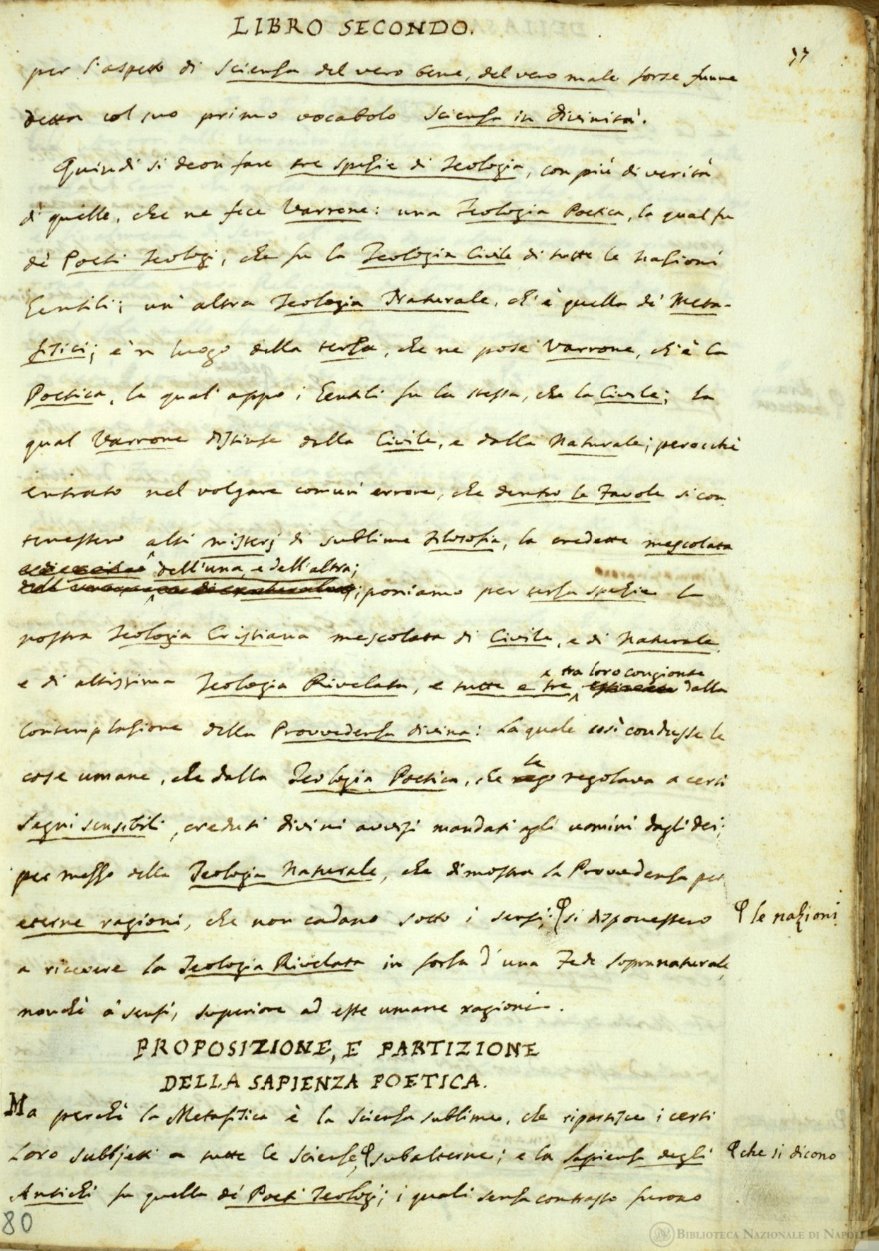 LIBRO SECONDO.
77
per l'aspetto di Scienza del vero bene, del vero male forse funne
detta col suo primo vocabolo Scienza in divinità.
Quindi si deon fare tre spezie di Teologia, con più di verità
di quelle, che ne fece Varrone: una Teologia Poetica, la qual fu
de' Poeti Teologi, che fu la Teologia Civile di tutte le nazioni
Gentili; un' altra Teologia Naturale, ch'è quella de' Meta-
fisici; e 'n luogo della terza, che ne pose Varrone, ch'è la
Poetica, la qual' appo i Gentili fu la stessa, che la Civile; la
qual Varrone distinse dalla Civile, e dalla Naturale; perocchè
entrato nel volgare comun' errore, che dentro le Favole si con-
tenessero alti misterj di sublime Filosofia, la credette mescolata
dell'una, e dell'altra;
poniamo per terza spezie la
nostra Teologia Cristiana mescolata di Civile, e di Naturale,
e di altissima Teologia Rivelata, e tutte e tre
e tra loro congionte
dalla
Contemplazione della Provvedenza divina: La quale così condusse le
cose umane, che dalla Teologia Poetica, che
le
regolava a certi
Segni sensibili, creduti divini avvisi mandati agli uomini dagli dei;
per mezzo della Teologia Naturale, che dimostra la Provvedenza per
eterne ragioni, che non cadano sotto i sensi; si disponessero
le nazioni
a ricevere la Teologia Rivelata in forza d'una Fede soprannaturale,
nonchè a' sensi, superiore ad esse umane ragioni.
PROPOSIZIONE, E PARTIZIONE
DELLA SAPIENZA POETICA.
Ma perchè la Metafisica è la Scienza sublime, che ripartisce i certi
Loro subbjetti a tutte le Scienze, subalterne; e la Sapienza degli
che si dicono
Antichi fu quella de' Poeti Teologi; i quali senza contrasto furono
80
BIBLIOTECA NAZIONALE DI NAPOLI